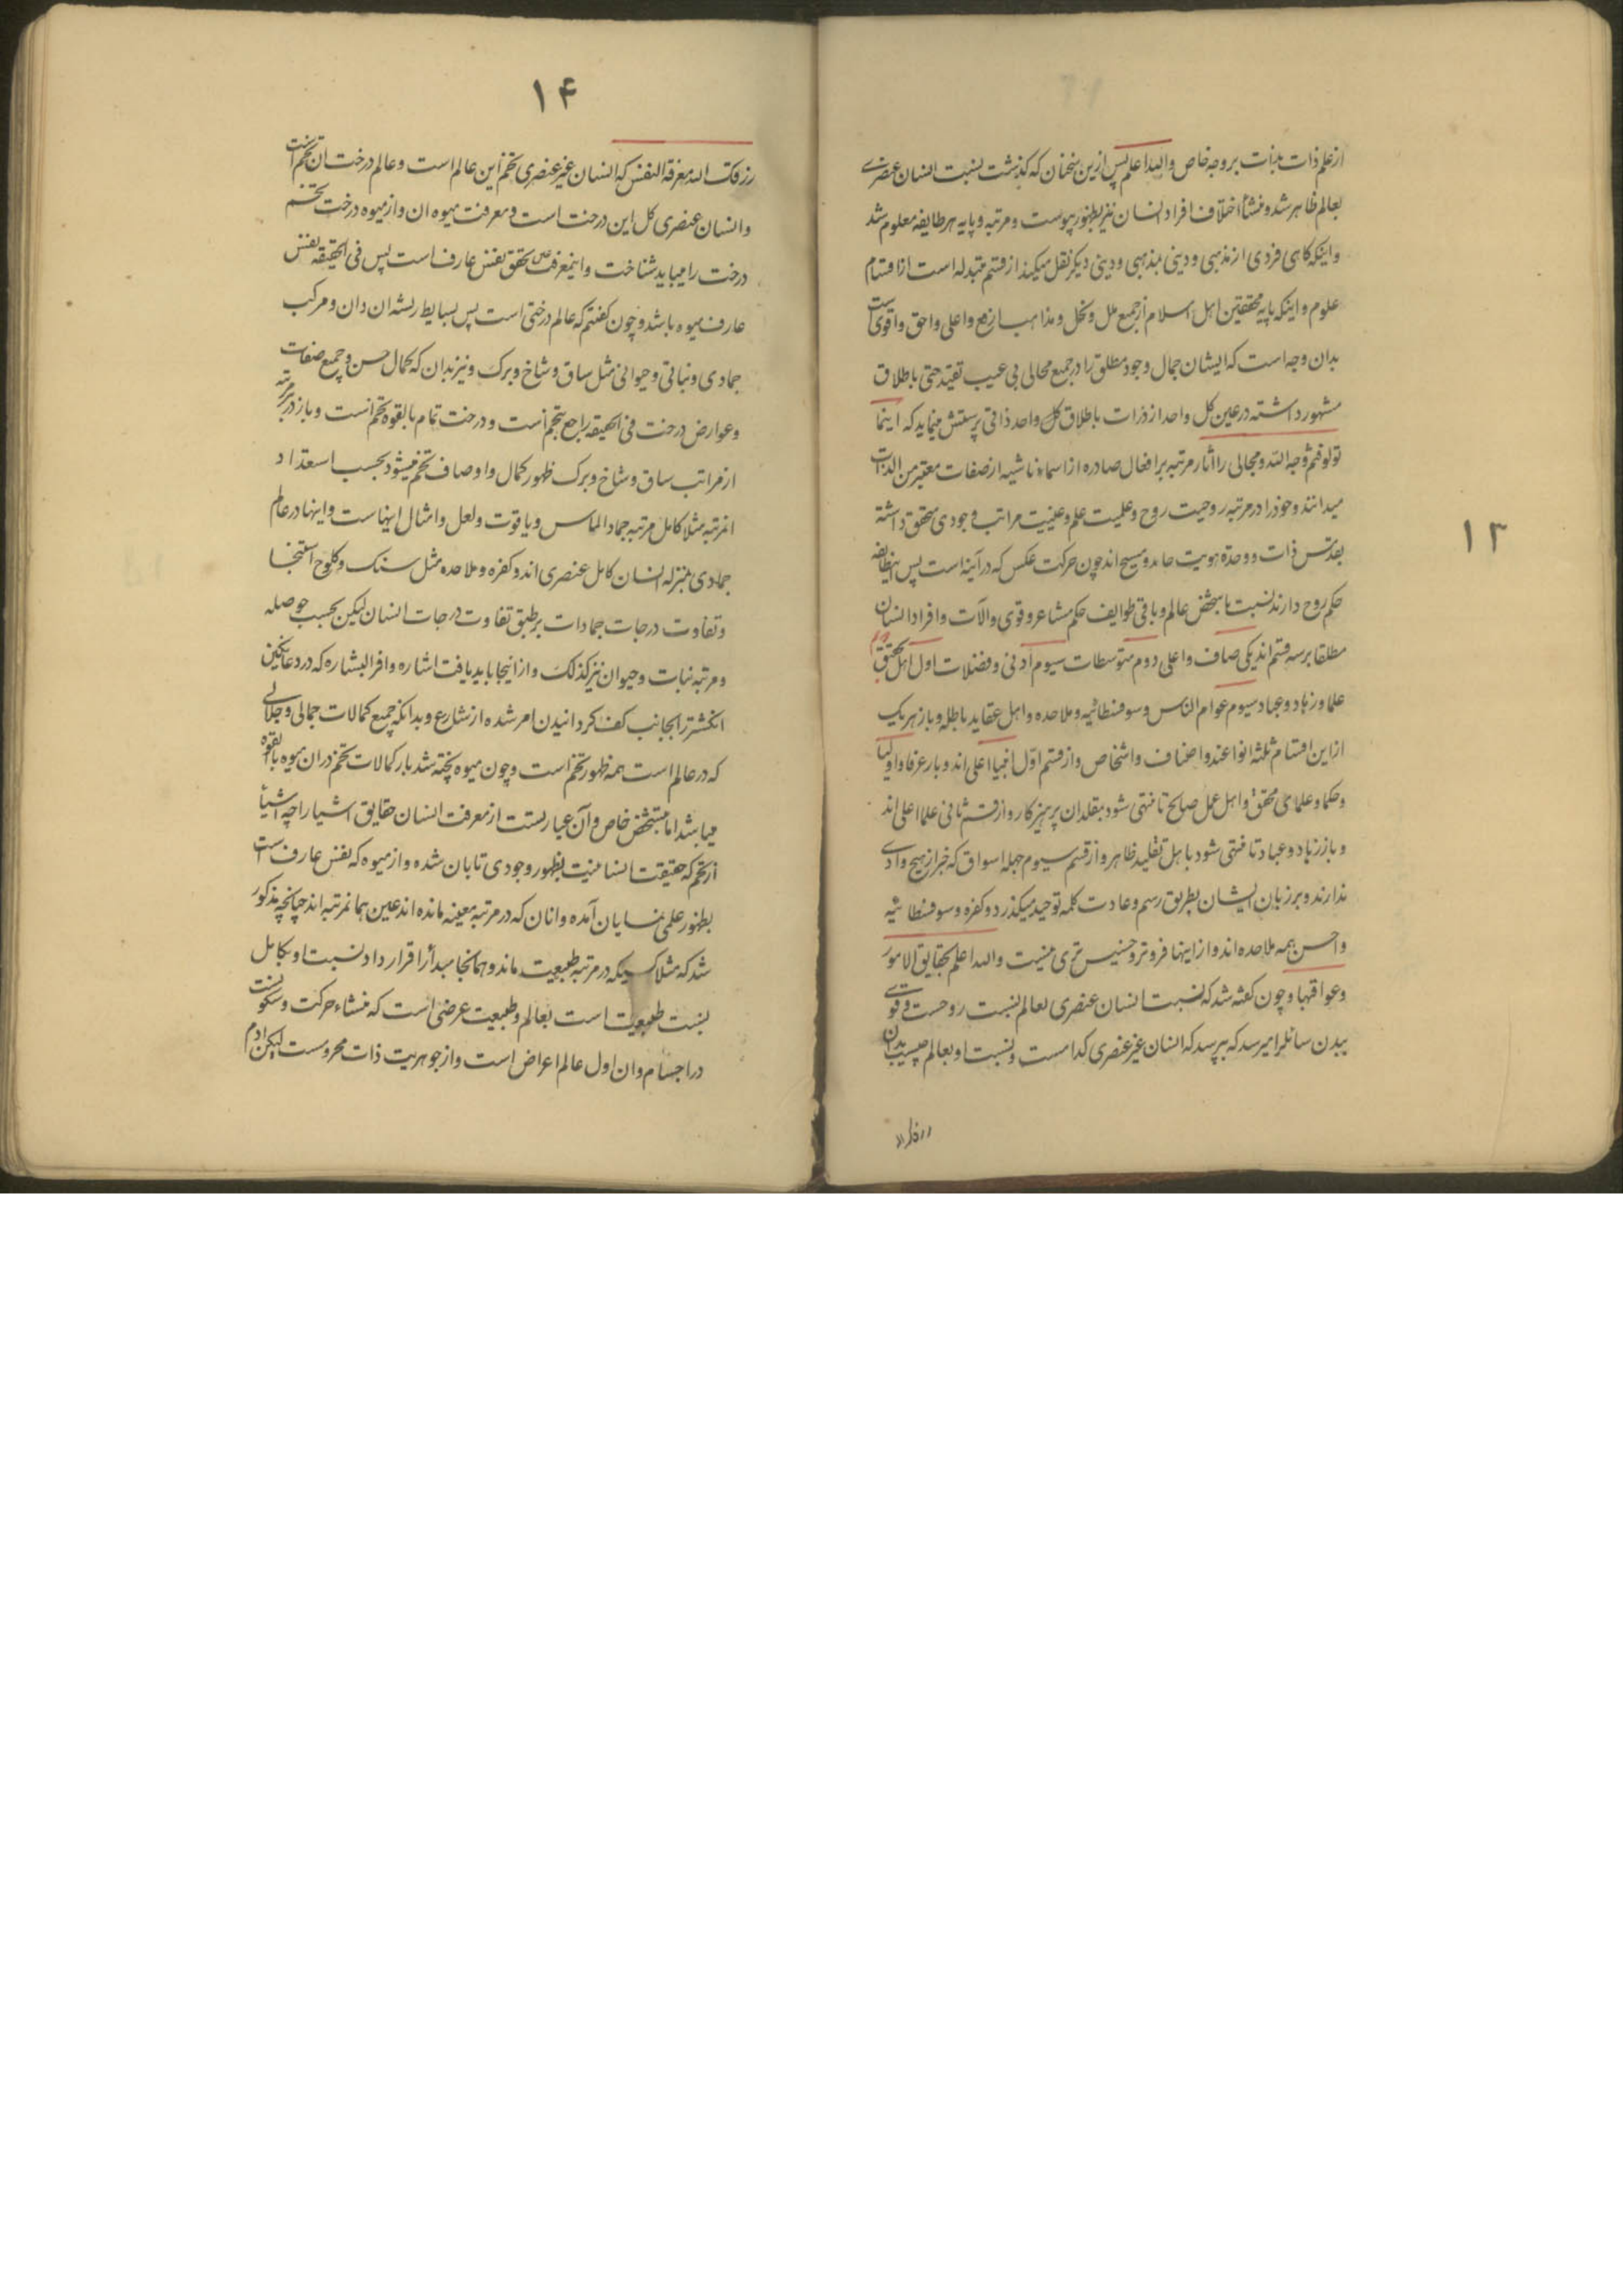 ۱۳
از علم ذات بذات بر وجه خاص والله اعلم پس ازین سخنان که گذشت نسبت انسان عنصری
بعالم ظاهر شد و منشأ اختلاف افراد انسان نیز بظهور پیوست و مرتبه و پایه هر طایفه معلوم شد
و اینکه کاهی فردی از مذهبی و دینی بمذهبی و دینی دیکر نقل میکند از قسم متبدله است از اقسام
علوم و اینکه پایه محققین اهل اسلام از جمیع ملل و نحل و مذاهب ارفع و اعلی و احق و اقوی است
بدان وجه است که ایشان جمال وجود مطلق را در جمیع مجالی بی عیب تقید حتی باطلاق
مشهور داشته در عین کل واحد از ذرات باطلاق کل واحد ذاتی پرستش مینماید که اینما
تولوا فثم وجه الله و مجالی را اثار مرتبه بر افعال صادره از اسماء ناشیه از صفات معتبر من الذات
میدانند و خود را در مرتبه روحیت روح و علمیت علم و عینیت مراتب وجودی متحقق داشته
بقدس ذات و وحدة هویت حامد و مسبح اند چون حرکت عکس که در آینه است پس اینطایفه
حکم روح دارند نسبت با شخص عالم و باقی طوایف حکم مشاعر و قوی و الات و افراد انسان
مطلقا بر سه قسم اند یکی صاف و اعلی دوم متوسطات سیوم ادنی و فضلات اول اهل تحقیق دوم
علما و زهاد و عباد سیوم عوام الناس و سوفسطائیه و ملاحده و اهل عقاید باطله و باز هر یک
ازاین اقسام ثلثه انواعند و اصناف و اشخاص و از قسم اول انبیا اعلی اند و باز عرفا و اولیا
و حکما و علمای محقق و اهل عمل صالح تا منتهی شود بمقلدان پرهیزکار و از قسم ثانی علما اعلی اند
و باز زهاد و عباد تا منتهی شود باهل تقلید ظاهر و از قسم سیوم جهله اسواق که خبر از هیچ وادی
ندارند و بر زبان ایشان بطریق رسم و عادت کلمه توحید میکذرد و کفره و سوفسطائیه
و اخس همه ملاحده اند و از اینها فروتر و خسیس تری نیست والله اعلم بحقایق الامور
و عواقبها و چون کفته شد که نسبت انسان عنصری بعالم نسبت روحست و قوی
ببدن سائلرا میرسد که بپرسد که انسان غیر عنصری کدامست و نسبت او بعالم چیست بدان
رزقک الله
۱۴
رزقک الله معرفة النفس که انسان غیر عنصری تخم این عالم است و عالم درخت ان تخم است
و انسان عنصری کل این درخت است و معرفت میوه ان و از میوه درخت تخم
درخت را میباید شناخت و اینمعرفت تحقق نفس عارف است پس فی الحقیقه نفس
عارف میوه باشد و چون کفتم که عالم درختی است پس بسایط ریشه ان دان و مرکب
جمادی و نباتی و حیوانی مثل ساق و شاخ و برک و نیز بدان که کمال حسن و جمیع صفات
و عوارض درخت فی الحقیقه راجع بتخم است و درخت تمام بالقوه تخم است و باز در هر مرتبه
از مراتب ساق و شاخ و برک ظهور کمال و اوصاف تخم میشود بحسب استعداد
انمرتبه مثلا کامل مرتبه جماد الماس و یاقوت و لعل و امثال اینهاست و اینها در عالم
جمادی بمنزله انسان کامل عنصری اند و کفره و ملاحده مثل سنک و کلوخ استنجا
و تفاوت درجات جمادات بر طبق تفاوت درجات انسان لیکن بحسب حوصله
و مرتبه نبات و حیوان نیز کذلک و از اینجا باید یافت اشاره وافر البشاره که در دعا نکین
انکشتر را بجانب کف کردانیدن امر شده از شارع و بدانکه جمیع کمالات جمالی و جلالی
که در عالم است همه ظهور تخم است و چون میوه پخته شد باز کمالات تخم در ان میوه بالقوه
میباشد اما بتشخص خاص و آن عبارتست از معرفت انسان حقایق اشیا را چه اشیأ
از تخم که حقیقت انسانیت بظهور وجودی تابان شده و از میوه که نفس عارف است
بظهور علمی نمایان آمده و انان که در مرتبه معینه مانده اند عین همانمرتبه اند چنانچه مذکور
شد که مثلا کسیکه در مرتبه طبیعت ماند و همانجا مبدأ را قرار داد نسبت او بکامل
نسبت طبیعت است بعالم و طبیعت عرضی است که منشاء حرکت و سکونست
در اجسام و ان اول عالم اعراض است و از جوهریت ذات محروست لیکن ادم